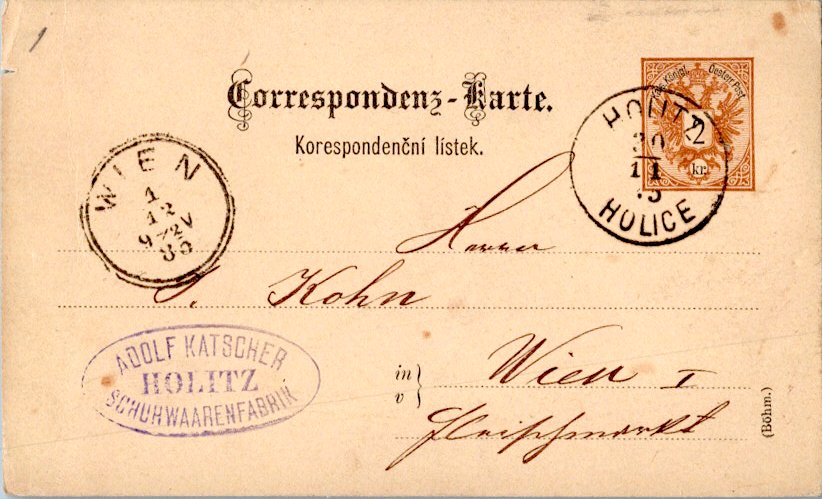 Correspondenz-Karte.
Korespondenční lístek.
Kais. Königl. Oesterr. Post
2
kr.
HOLITZ
30
11
HOLICE
WIEN
1
12
9½V
85
Herrn
Kohn
ADOLF KATSCHER
HOLITZ
SCHUHWAARENFABRIK
in
v
Wien I
Fleischmarkt
(Böhm.)